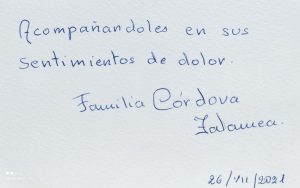 Acompañandoles en sus
Sentimientos de dolor.
Familia Córdova
Zalamea.
26/VII/2021